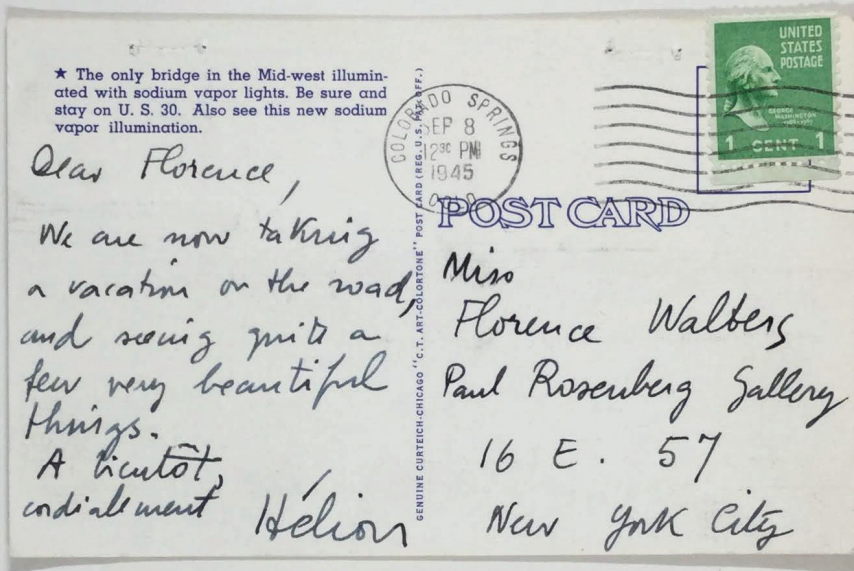 ★ The only bridge in the Mid-west illumin-
ated with sodium vapor lights. Be sure and
stay on U. S. 30. Also see this new sodium
vapor illumination.
Dear Florence,
We are now taking
a vacation on the road,
and seeing quite a
few very beautiful
things.
A bientôt,
cordialement
Hélion
GENUINE CURTEICH-CHICAGO "C.T. ART-COLORTONE" POST CARD (REG. U.S. PAT. OFF.)
COLORADO SPRINGS
SEP 8
12 30 PM
1945
COLO
UNITED
STATES
POSTAGE
GEORGE
WASHINGTON
1 CENT 1
POST CARD
Miss
Florence Walberg
Paul Rosenberg Gallery
16 E. 57
New York City